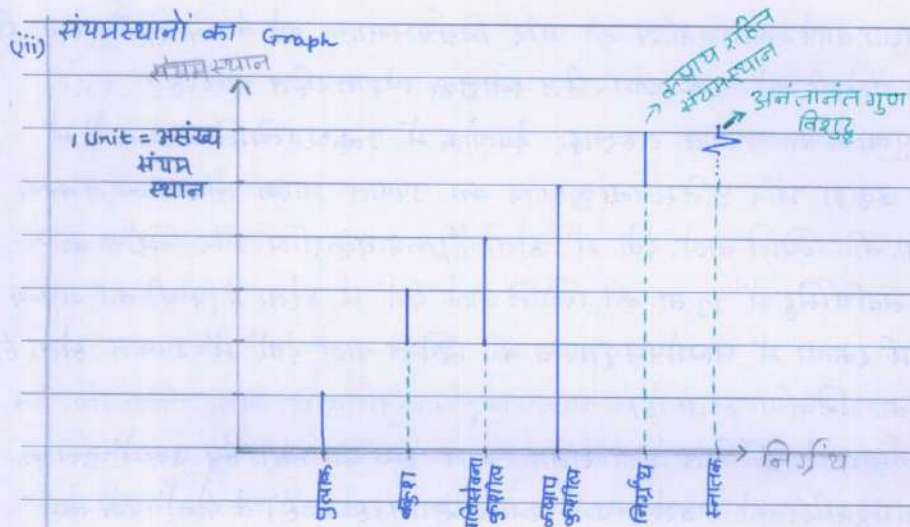 (iii) संयमस्थानों का Graph
संयमस्थान
1 Unit = असंख्य
संयम
स्थान
कषाय रहित
संयमस्थान
अनंतानंत गुण
विशुद्ध
निर्ग्रंथ
पुलाक
बकुश
प्रतिसेवना
कुशील
कषाय
कुशील
निर्ग्रंथ
स्नातक